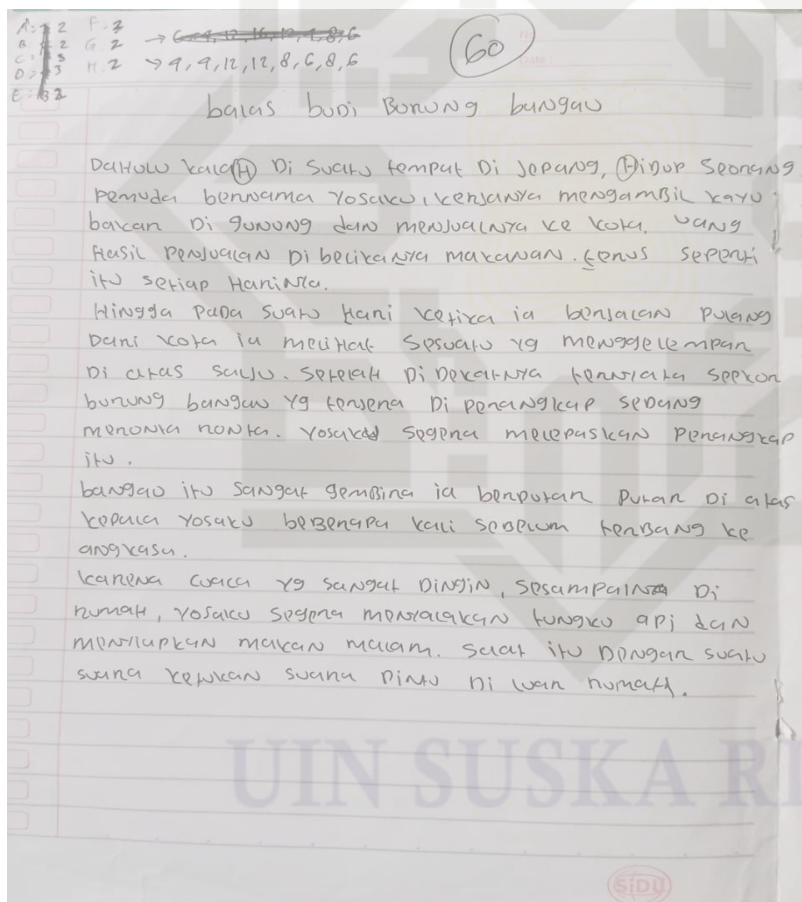 A: 2 F. 3
B 2 G. 2
C: 3 H. 2
D: 3
E: 2
→ 9, 9, 12, 12, 8, 6, 8, 6
60
balas buDi Burung bungau
DaHulu kalaH Di Suatu tempat Di Jepang, HiDup Seorang
Pemuda bernnama Yosaku, kerjanya mengamBil kayu
bakan Di gunung dan menjualnya ke kota. Uang
Hasil PenJualan Di belikannya makanan. terus seperti
itu setiap Harinya.
Hingga Pada suatu Hari ketika ia berjalan Pulang
Dari kota ia meliHat Sesuatu yg menggelempar
Di atas salju. Setelah Di Dekatnya ternyata seekor
burung bangau Yg terjena Di Perangkap seDang
meronta ronta. Yosaku segera melepaskan Perangkap
itu.
bangao itu sangat gemBira ia berputar Putar Di atas
kepala Yosaku beBerapa kali seBelum terBang ke
angkasa.
karena cuaca yg sangat Dingin, sesampainya Di
rumaH, Yosaku segera menyalakan tungku api dan
menyiapkan makan malam. Saat itu Dengar suatu
suara ketukan suara Pintu Di luar rumaH.
UIN SUSKA RI
SiDU